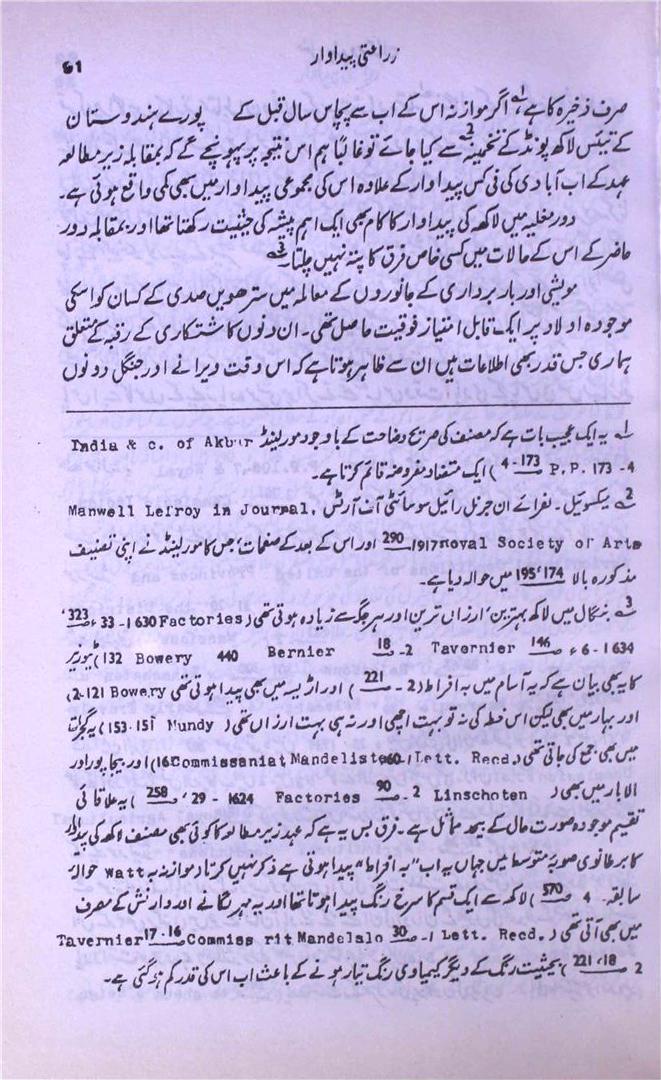 زراعتی پیداوار
61
صرف ذخیرہ کا ہے؂1 اگر موازنہ اس کے اب سے پچاس سال قبل کے پورے ہندوستان
کے تیئس لاکھ پونڈ کے تخمینہ؂2 سے کیا جائے تو غالباً ہم اس نتیجہ پر پہونچے گے کہ بمقابلہ زیر مطالعہ
عہد کے اب آبادی کی فی کس پیداوار کے علاوہ اس کی مجموعی پیداوار میں بھی کمی واقع ہوئی ہے۔
دور مغلیہ میں لاکھ کی پیداوار کا کام بھی ایک اہم پیشہ کی حیثیت رکھتا تھا اور بمقابلہ دور
حاضر کے اس کے حالات میں کسی خاص فرق کا پتہ نہیں چلتا؂3
مویشی اور بار برداری کے جانوروں کے معاملہ میں سترھویں صدی کے کسان کو اسکی
موجودہ اولاد پر ایک قابل امتیاز فوقیت حاصل تھی۔ ان دنوں کاشتکاری کے رقبہ کے متعلق
ہماری جس قدر بھی اطلاعات ہیں ان سے ظاہر ہوتا ہے کہ اس وقت ویرانے اور جنگل دونوں
؂1 یہ ایک عجیب بات ہے کہ مصنف کی صریح وضاحت کے باوجود مورلینڈ India & c. of Akbur
P.P. 173-4 (173-4) ایک متضاد مفروضہ قائم کرتا ہے۔
؂2 میکسویل۔ لفرائے ان جرنل رائیل سوسائٹی آف آرٹس Manwell Lefroy in Journal,
Royal Society of Arts 1917 290 اور اس کے بعد کے صفحات، جس کا مورلینڈ نے اپنی تصنیف
مذکورہ بالا 174، 195 میں حوالہ دیا ہے۔
؂3 بنگال میں لاکھ بہترین، ارزاں ترین اور ہر جگہ سے زیادہ ہوتی تھی (Factories 1630-33، 323،
1634-6، 146 Tavernier 2- 18 Bernier 440 Bowery 132)
کا یہ بھی بیان ہے کہ یہ آسام میں بہ افراط (2- 221) اور اڑیسہ میں بھی پیدا ہوتی تھی Bowery 121-2،
اور بہار میں بھی لیکن اس خطہ کی نہ تو بہت اچھی اور نہ ہی بہت ارزاں تھی (Mundy 151-153) یہ گجرات
میں بھی جمع کی جاتی تھی (Lett. Recd. 1- 60 Commissariat Mandelisto 16) اور بیجاپور اور
مالابار میں بھی (Linschoten 2 90 Factories 1624-29، 258) یہ علاقائی
تقسیم موجودہ صورت حال کے بیحد مماثل ہے۔ فرق بس یہ ہے کہ عہد زیر مطالعہ کا کوئی بھی مصنف لاکھ کی پیداوار
کا برطانوی صوبہ متوسط میں جہاں یہ اب "بہ افراط" پیدا ہوتی ہے ذکر نہیں کرتا (موازنہ بہ Watt حوالہ
سابقہ۔ 4 570) لاکھ سے ایک قسم کا سرخ رنگ پیدا ہوتا تھا اور یہ مہر لگانے اور وارنش کے مصرف
میں بھی آتی تھی (Lett. Recd. 1- 30 Commiss rit Mandelslo 16-17 Tavernier
2 18، 221) بحیثیت رنگ کے دیگر کیمیاوی رنگ تیار ہونے کے باعث اب اس کی قدر کم ہو گئی ہے۔